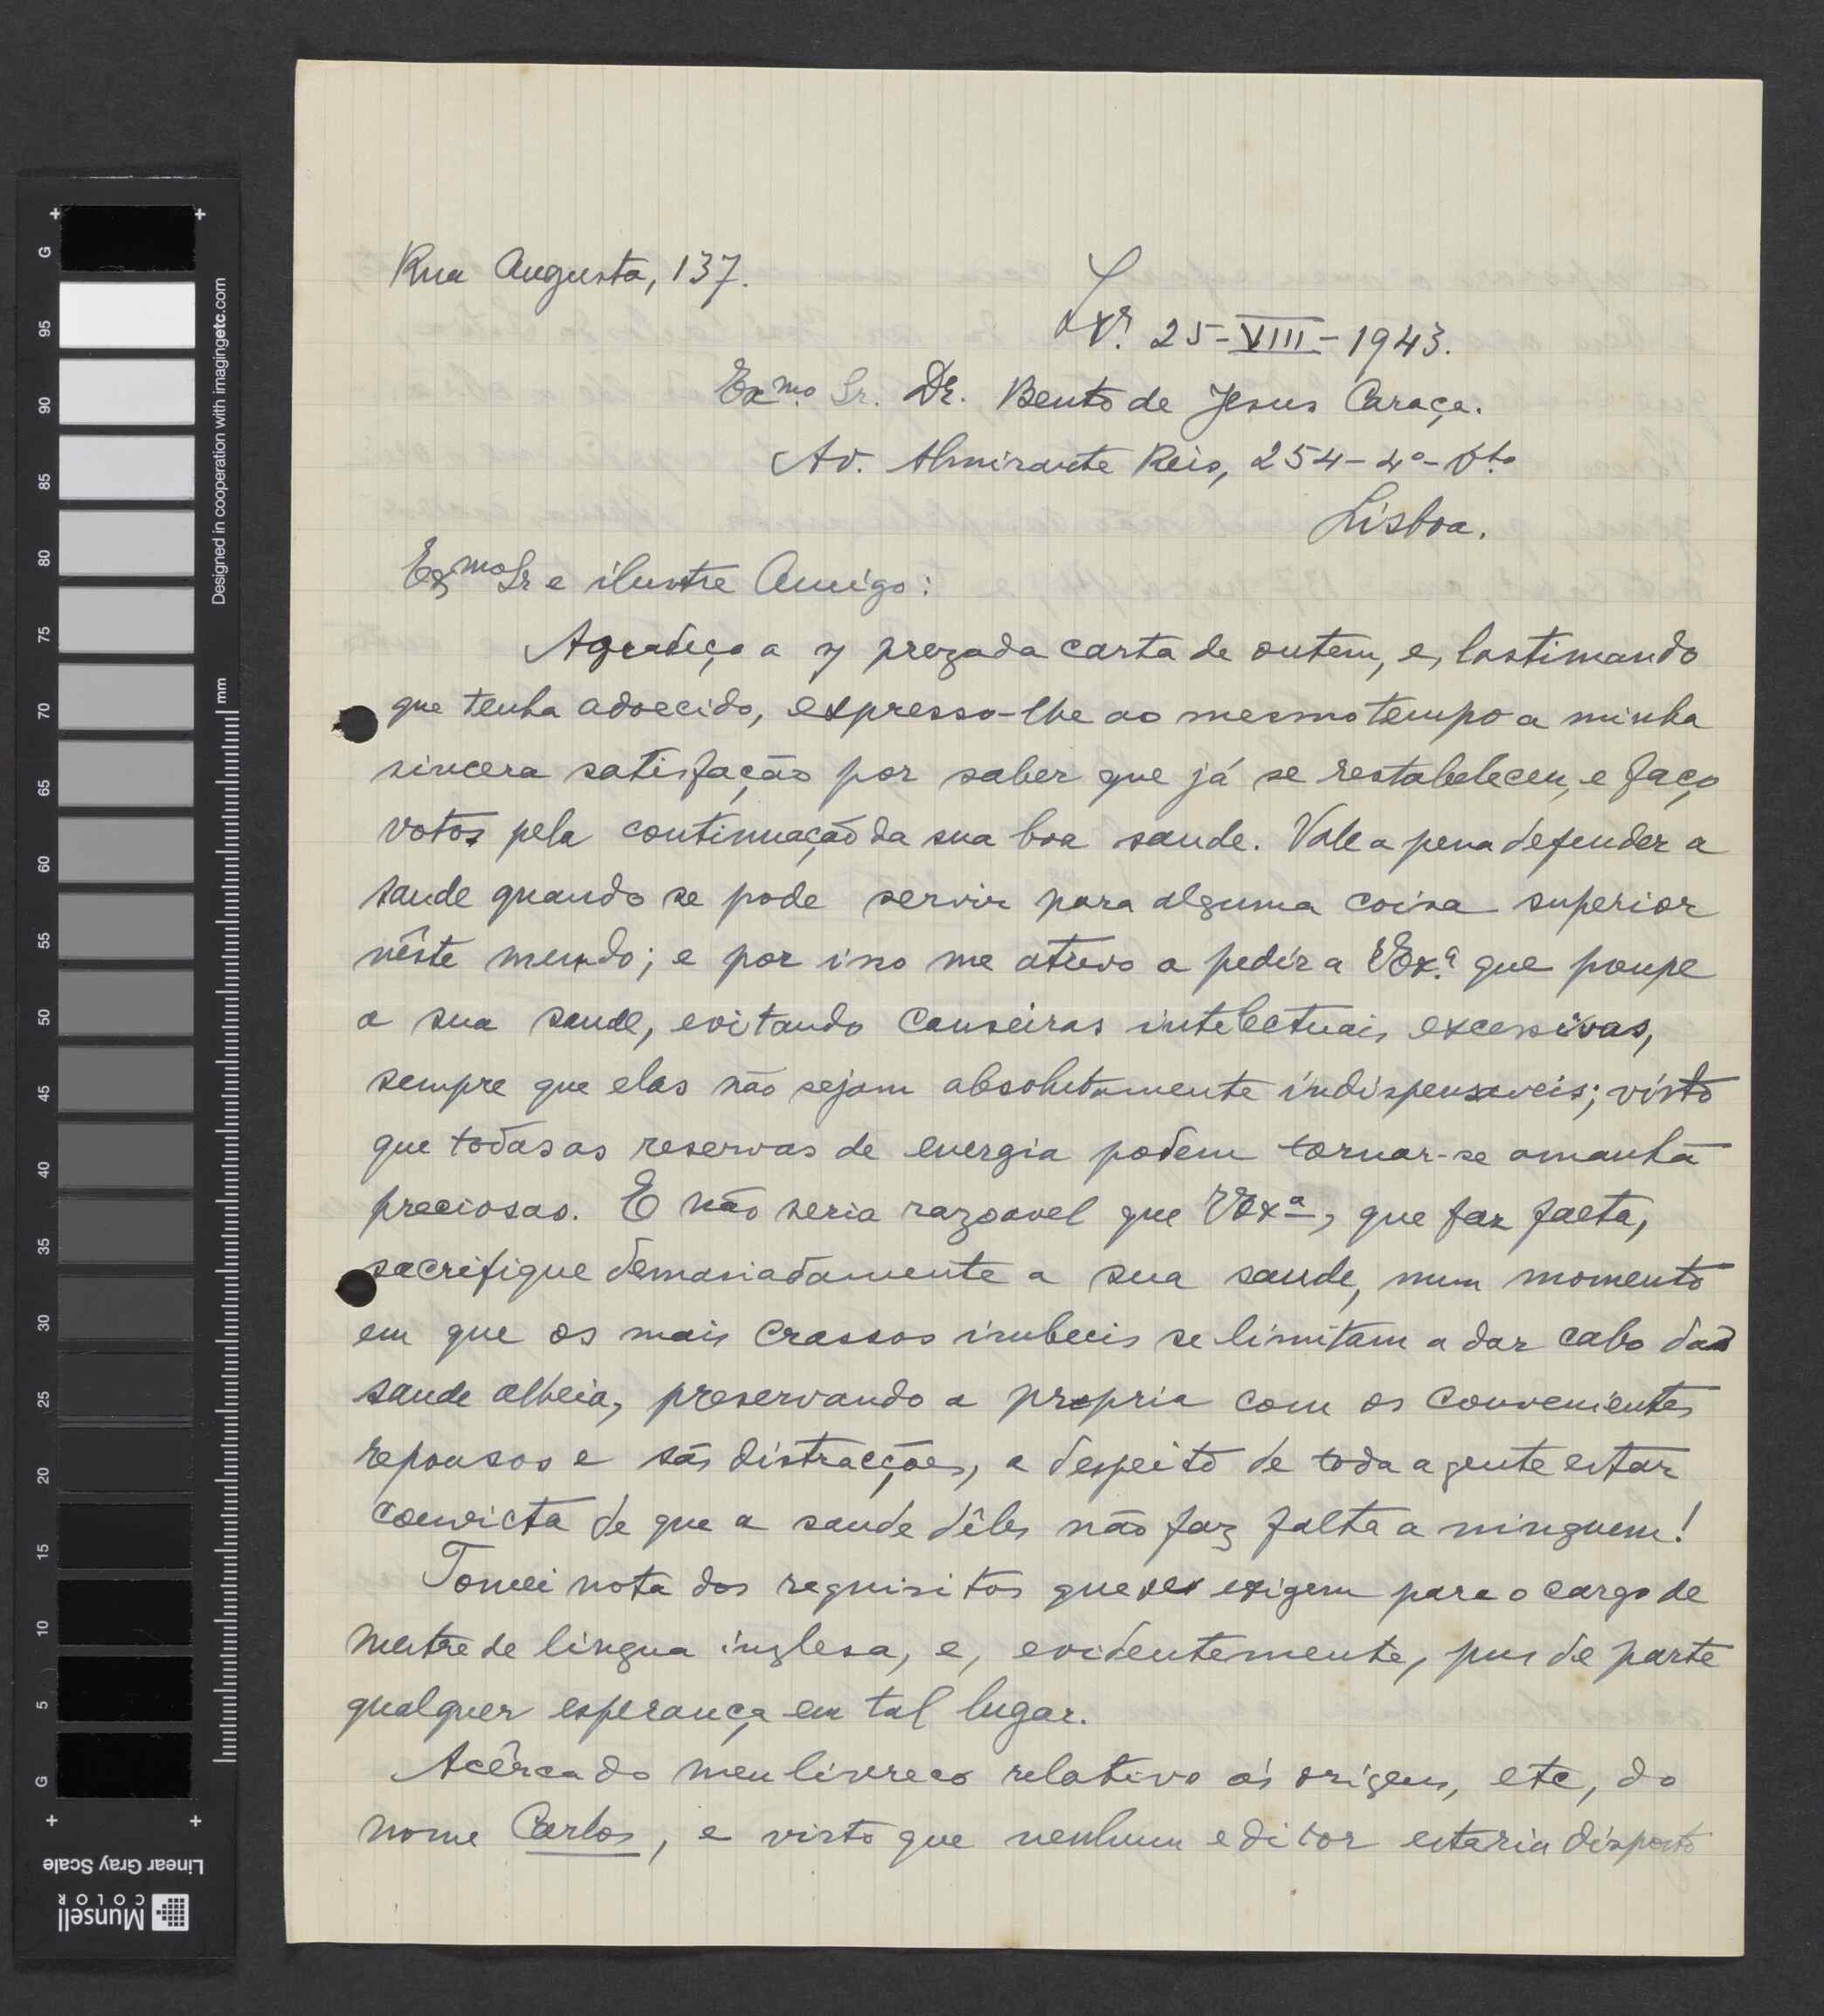 Rua Augusta, 137.
Lxª. 25-VIII-1943.
Exmo. Sr. Dr. Bento de Jesus Caraça.
Av. Almirante Reis, 254-4º-Dto
Lisboa.
Exmo Sr e ilustre Amigo:
Agradeço a prezada carta de ontem, e, lastimando
que tenha adoecido, expresso-lhe ao mesmo tempo a minha
sincera satisfação por saber que já se restabeleceu, e faço
votos pela continuação da sua boa saude. Vale a pena defender a
saude quando se pode servir para alguma coisa superior
nêste mundo; e por isso me atrevo a pedir a VExª que poupe
a sua saude, evitando canseiras intelectuais excessivas,
sempre que elas não sejam absolutamente indispensaveis; visto
que todas as reservas de energia podem tornar-se amanhã
preciosas. E não seria razoavel que VExª, que faz falta,
sacrifique demasiadamente a sua saude, num momento
em que os mais crassos imbecis se limitam a dar cabo da
saude alheia, preservando a propria com os convenientes
repousos e sãs distracções, a despeito de toda a gente estar
convicta de que a saude dêles não faz falta a ninguem!
Tomei nota dos requisitos que se exigem para o cargo de
mestre de lingua inglesa, e, evidentemente, pus de parte
qualquer esperança em tal lugar.
Acêrca do meu livreco relativo ás origens, etc, do
nome Carlos, e visto que nenhum editor estaria disposto
Designed in cooperation with imagingetc.com
mm
G
95
90
85
80
75
70
65
60
55
50
45
40
35
30
25
20
15
10
5
G
Linear Gray Scale
Munsell
COLOR